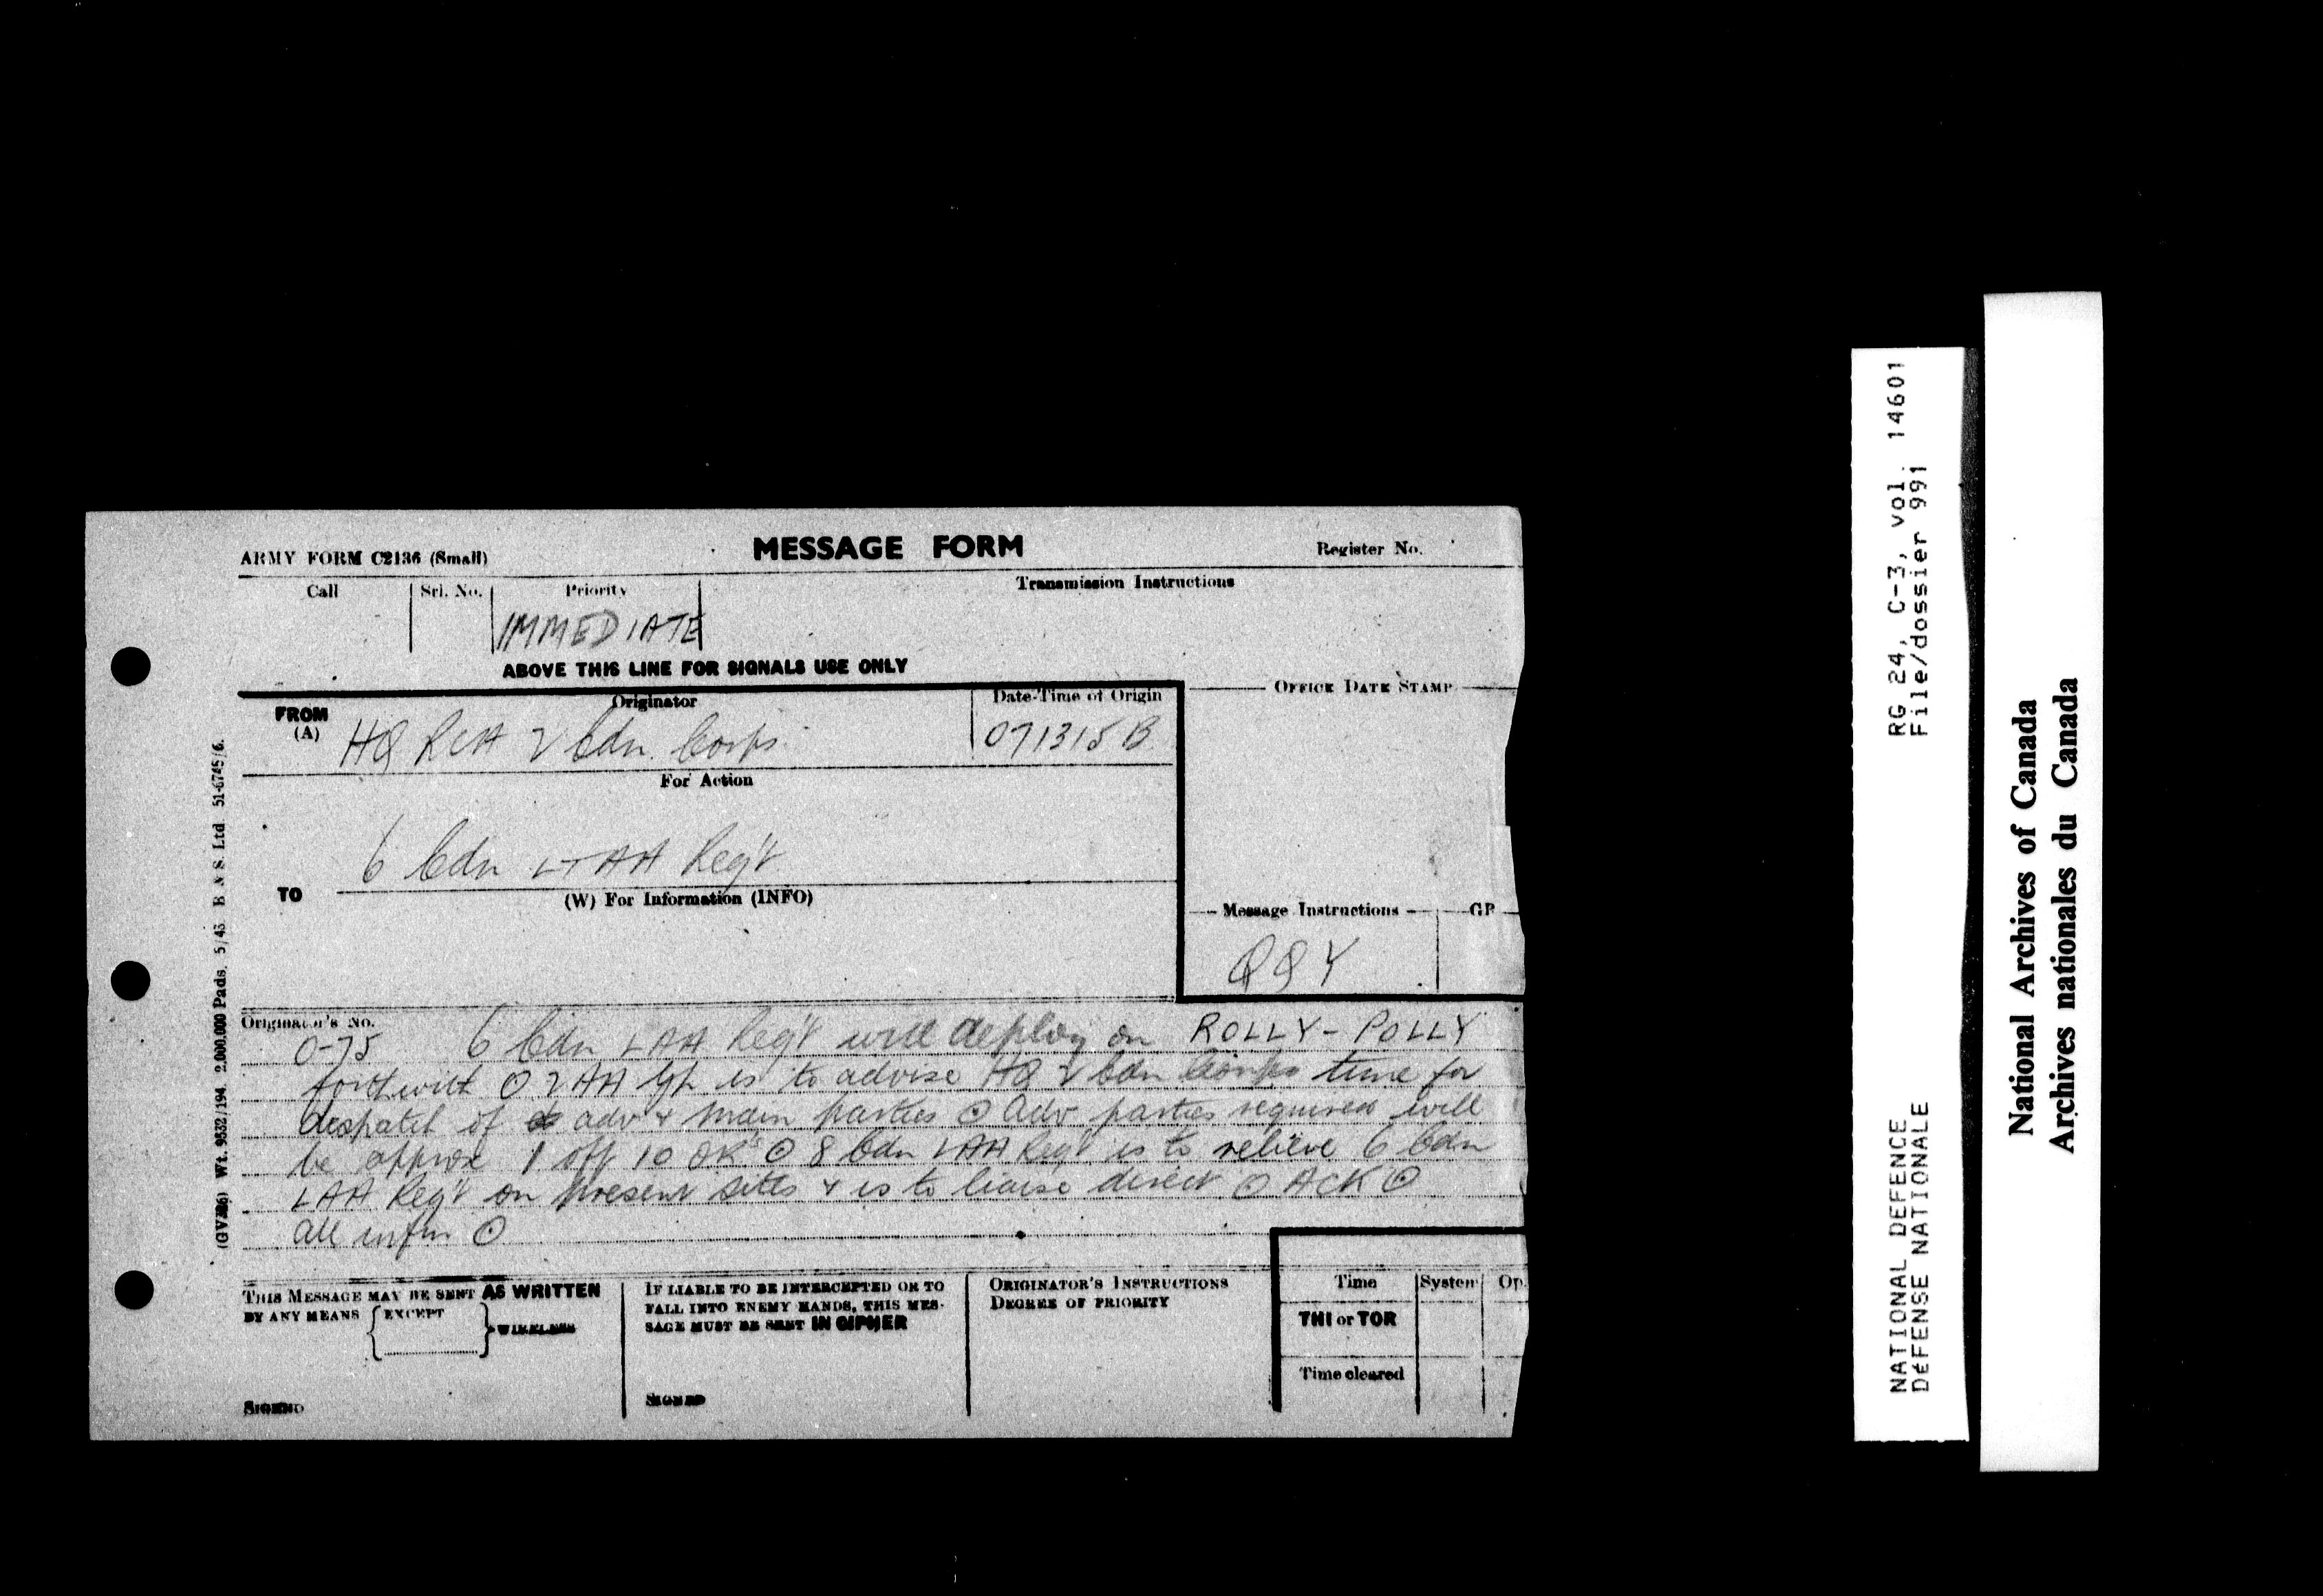 ARMY FORM C2136 (Small)
MESSAGE FORM
Register No.
Call
Srl. No.
Priority
Transmission Instructions
IMMEDIATE
ABOVE THIS LINE FOR SIGNALS USE ONLY
FROM
(A)
Originator
Date-Time of Origin
OFFICE DATE STAMP
HQ RCA 2 Cdn. Corps.
071315 B
For Action
6 Cdn LT AA Reg't
TO
(W) For Information (INFO)
Message Instructions
GR
QQY
Originator's No.
0-75 6 Cdn LAA Reg't will deploy on ROLLY-POLLY
forthwith ⊙ 2 AA Gp is to advise HQ 2 Cdn Corps time for
despatch of adv & main parties ⊙ Adv parties required will
be approx 1 off 10 OR's ⊙ 8 Cdn LAA Reg't is to relieve 6 Cdn
LAA Reg't on present sites & is to liaise direct ⊙ ACK ⊙
all infm ⊙
THIS MESSAGE MAY BE SENT AS WRITTEN
BY ANY MEANS
EXCEPT
WIRELESS
SIGNED
IF LIABLE TO BE INTERCEPTED OR TO
FALL INTO ENEMY HANDS, THIS MES-
SAGE MUST BE SENT IN CIPHER
SIGNED
ORIGINATOR'S INSTRUCTIONS
DEGREE OF PRIORITY
Time
System
Op.
THI or TOR
Time cleared
Wt. 9532/194. 2,000,000 Pads. 5/43. B N S Ltd 51-6745/6.
RG 24, C-3, vol. 14601
File/dossier 991
NATIONAL DEFENCE
DéFENSE NATIONALE
National Archives of Canada
Archives nationales du Canada